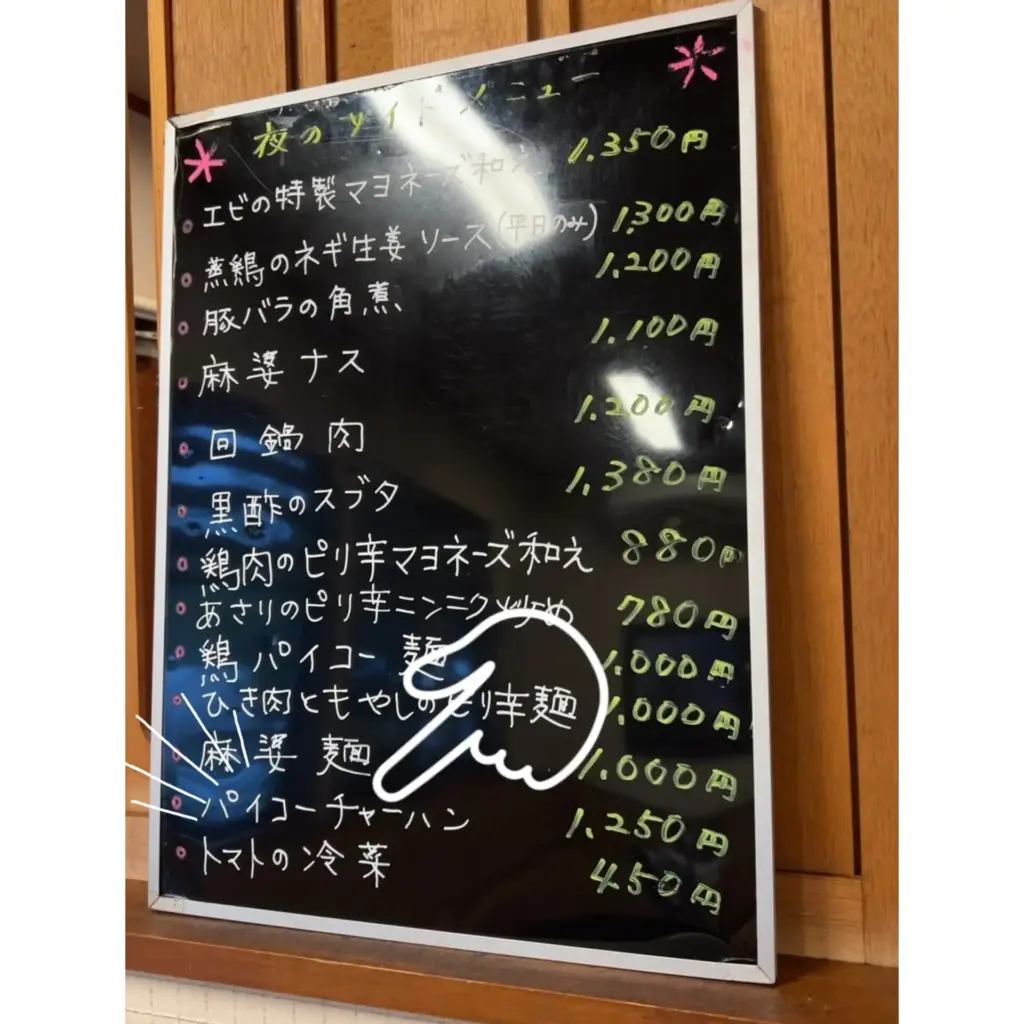 夜のサイドメニュー
エビの特製マヨネーズ和え 1.350円
蒸鶏のネギ生姜ソース(平日のみ) 1.300円
豚バラの角煮 1.200円
麻婆ナス 1.100円
回鍋肉 1.200円
黒酢のスブタ 1.380円
鶏肉のピリ辛マヨネーズ和え 880円
あさりのピリ辛ニンニク炒め 780円
鶏パイコー麺 1.000円
ひき肉ともやしのピリ辛麺 1.000円
麻婆麺 1.000円
パイコーチャーハン 1.250円
トマトの冷菜 450円